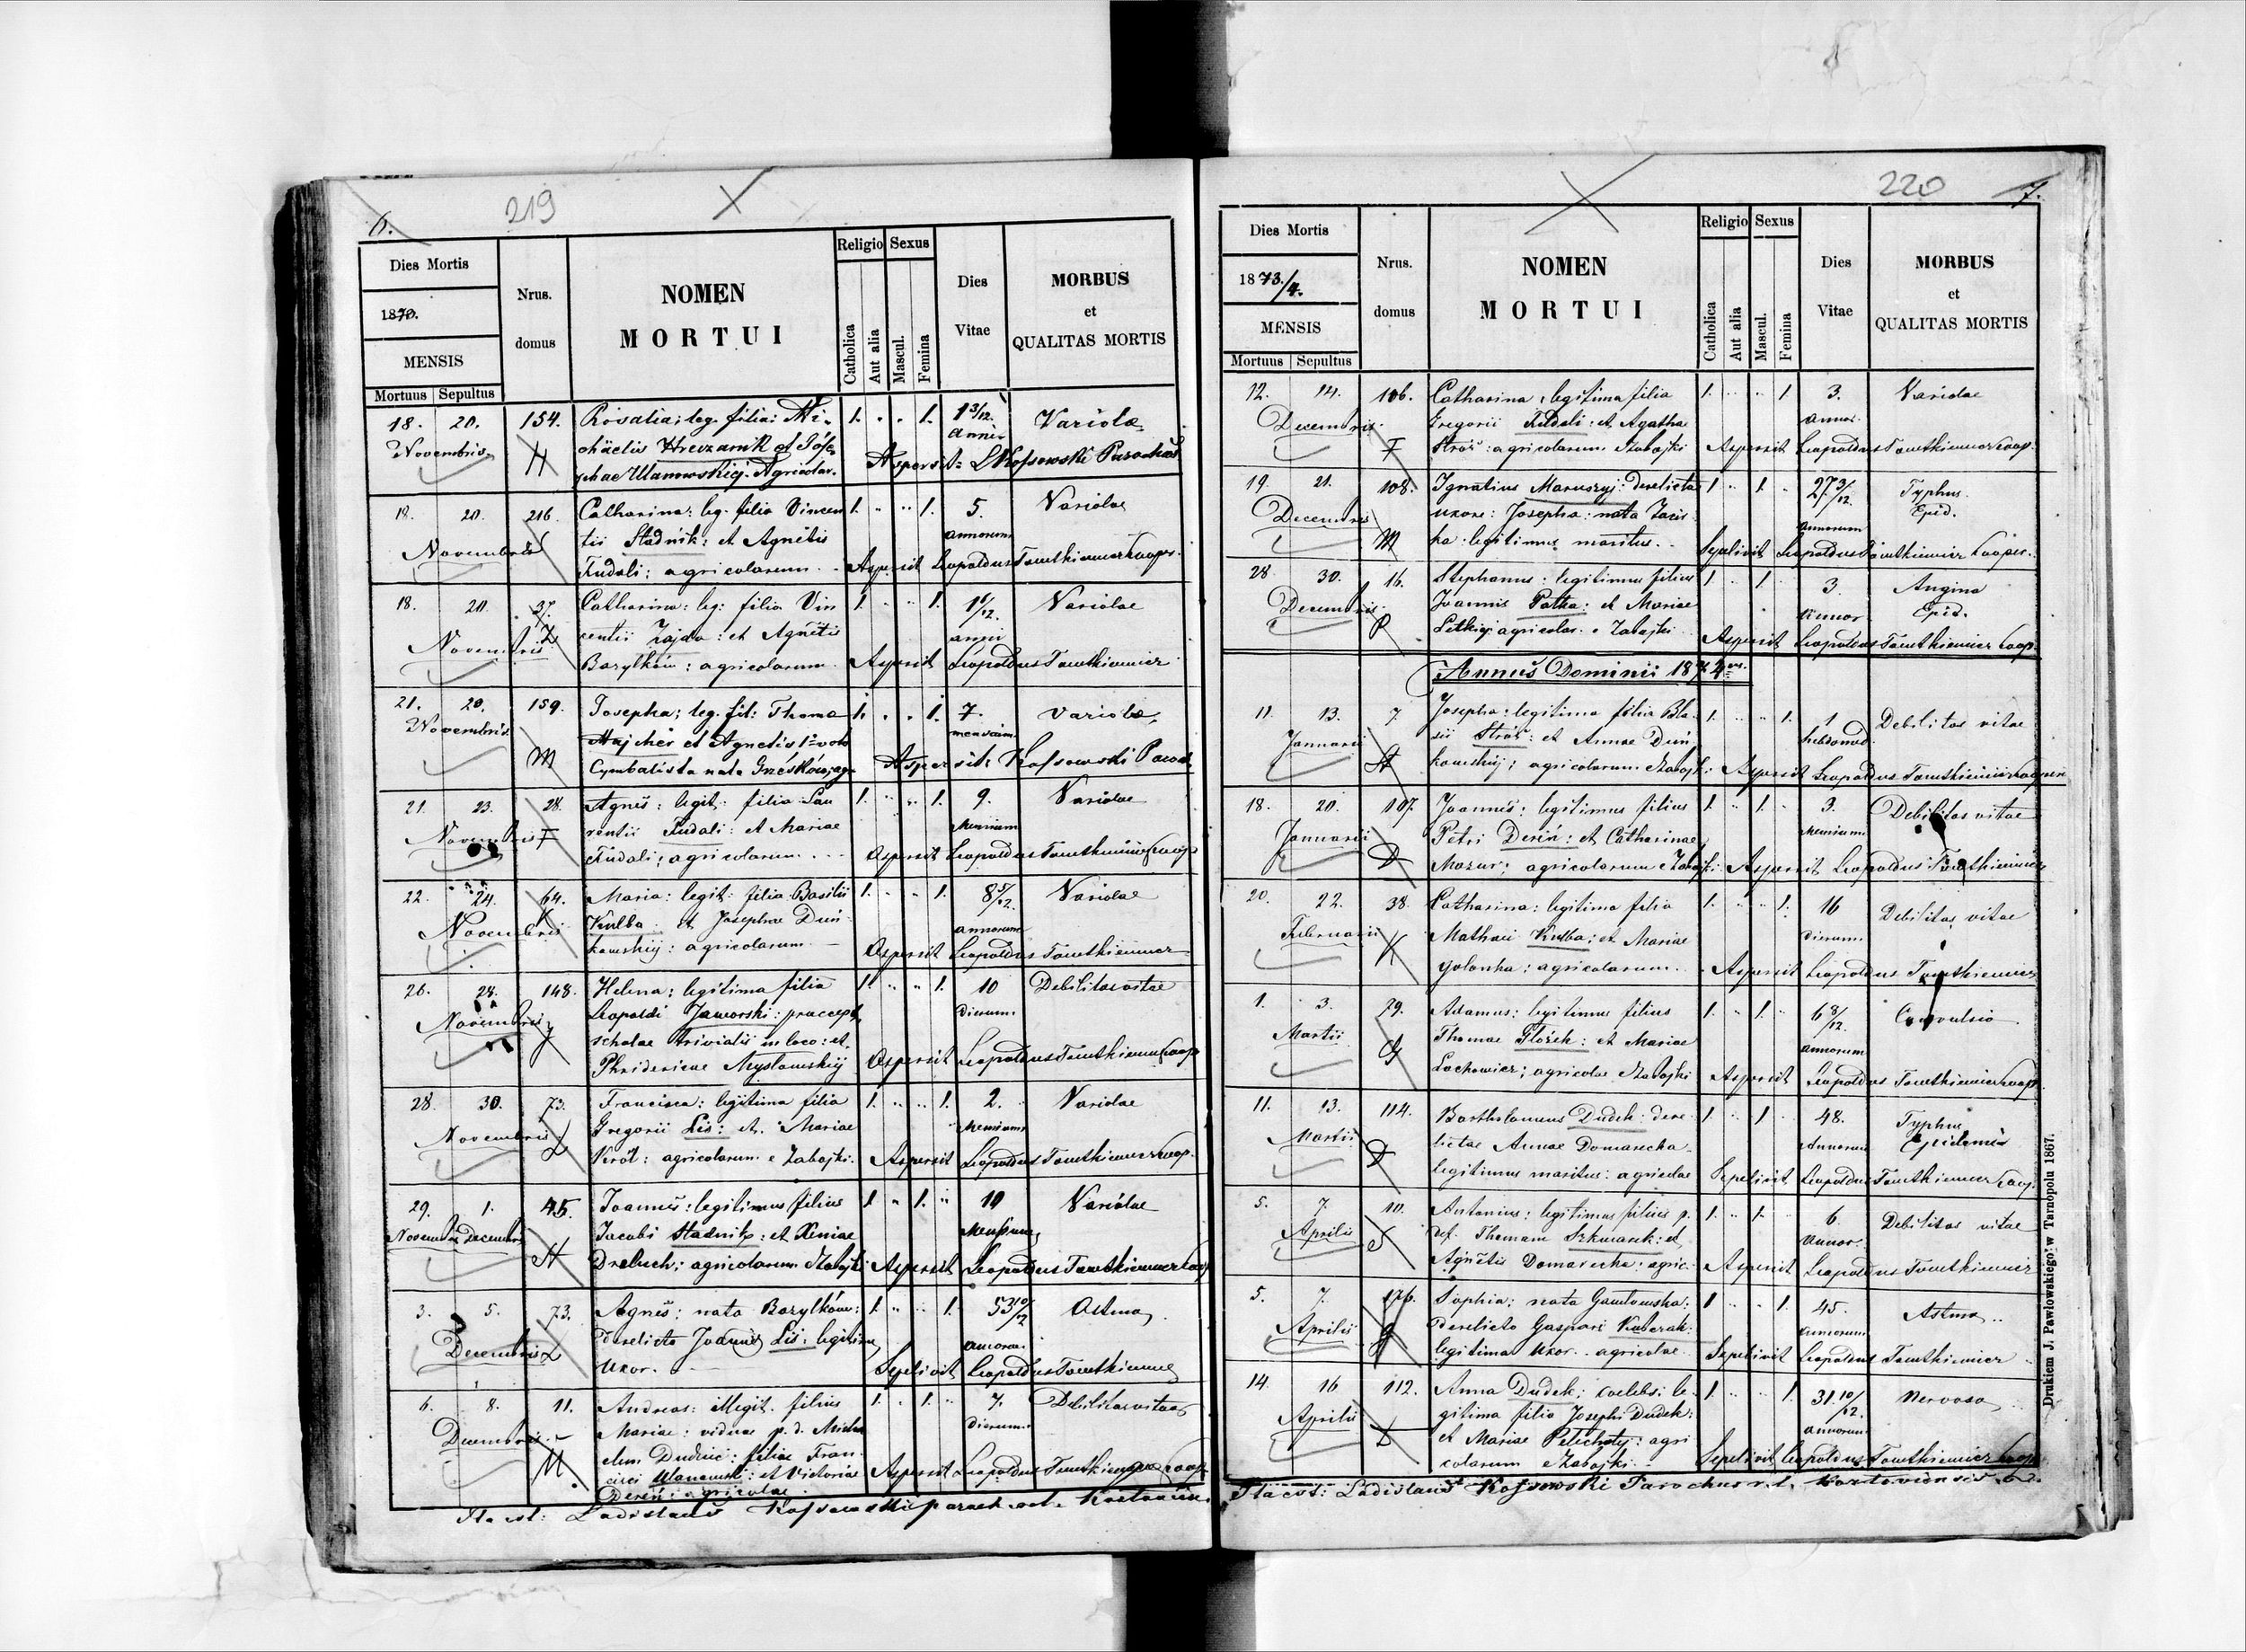 6.
219
Dies Mortis
1870.
MENSIS
Mortuus Sepultus
Nrus. domus
NOMEN
MORTUI
Religio Sexus
Catholica
Aut alia
Mascul.
Femina
Dies Vitae
MORBUS
et
QUALITAS MORTIS
18. 20. 154. Rosalia; leg. filia: Mi- 1. " " 1. 1 3/12. Variola
Novembris H chäelis Hreczanik et Jose- anni
phae Ulanowskiej. Agricolar. Aspersit: LKossowski Parochus
18. 20. 216. Catharina: leg. filia Vincen 1. " " 1. 5. Variolae
Novembris S tii Stadnik: et Agnetis annorum
Fudali: agricolarum. Aspersit Leopoldus Tomthiewicz Cooper.
18. 20. 37. Catharina: leg: filia Vin 1. " " 1. Variolae
Novembris Z centii Zajda: et Agnetis anni
Barylków: agricolarum. Aspersit Leopoldus Tomthiewicz
21. 20. 159. Josepha; leg. fil: Thoma 1. " " 1. 7. Variolae
Novembris M Majcher et Agnetis 1° voto mensium
Cymbalista nata Grześków; agr. Aspersit Kossowski Paroch
21. 23. 28. Agnes: legit: filia Lau 1. " " 1. 9. Variolae
Novembris F rentii Fudali: et Mariae Mensium
Fudali; agricolarum Aspersit Leopoldus Tomthiewicz Coop
22. 24. 64. Maria: legit: filia Basilii 1. " " 1. 8 5/12. Variolae
Novembris K Kulba et Josephae Duń annorum
kowskiej: agricolarum Aspersit Leopoldus Tomthiewicz
26. 28. 148. Helena: legitima filia 1. " " 1. 10 Debilitas vitae
Novembris J Leopoldi Jaworski: praecept. Dierum.
scholae trivialis in loco: et.
Phridericae Mysłowskiej Aspersit Leopoldus Tomthiewicz Coop
28. 30. 73. Francisca: legitima filia 1. " " 1. 2. Variolae
Novembris L Gregorii Lis: et Mariae Mensium
Król: agricolarum e Zabojki. Aspersit Leopoldus Tomthiewicz Coop.
29. 1. 45. Joannes: legitimus filius 1. " 1. " 10 Variolae
Novembris Decembris St Jacobi Stadnik: et Xeniae Mensium
Drebuch; agricolarum e Zabojki Aspersit Leopoldus Tomthiewicz Coop
3. 5. 73. Agnes: nata Barylków: 1. " " 1. 53 10/12 Astma
Decembris L Derelicta Joannis Lis: legitima annorum
Uxor. Sepelivit Leopoldus Tomthiewicz
6. 8. 11. Andreas: illegit. filius 1. " 1. " 7. Debilitas vitae
Decembris Mariae: viduae p. d. Micha Dierum
U elem Dudzic: filiae Fran-
cisci Ulanowski: et Victoriae Aspersit Leopoldus Tomthiewicz Coop
Dereń: agricolae.
Ita est: Ladislaus Kossowski paroch
220
7.
Dies Mortis
1873/4.
MENSIS
Mortuus Sepultus
Nrus. domus
NOMEN
MORTUI
Religio Sexus
Catholica
Aut alia
Mascul.
Femina
Dies Vitae
MORBUS
et
QUALITAS MORTIS
12. 14. 106. Catharina: legitima filia 1. " " 1 3. Variolae
Decembris F Gregorii Fudali: et Agatha annor.
Stróż: agricolarum e Zabojki Aspersit Leopoldus Tomthiewicz Coop.
19 21. 108. Ignatius Maruszyj: derelictae 1 " 1. " 27 3/12. Typhus
Decembris M uxore: Josepha: nata Zaris annorum Epid.
ka: legitimus maritus. Sepelivit Leopoldus Tomthiewicz Cooper.
28. 30. 16. Stephanus: legitimus filius 1 " 1. 3. Angina
Decembris P Joannis Patka: et Mariae annor. Epid.
agricolar. e Zabojki Aspersit Leopoldus Tomthiewicz Coop.
Annus Domini 1874us.
11 13. 7. Josepha: legitima filia Bla- 1. " " 1. 1 Debilitas vitae
Januarii St sii Stróż: et Annae Duń hebdomad.
kowskiej; agricolarum e Zabojk: Aspersit Leopoldus Tomthiewicz Cooper
18. 20. 107. Joannes: legitimus filius 1. " 1. " 3. Debilitas vitae
Januarii D Petri Dereń: et Catharinae Mensium
Mazur; agricolarum e Zabojki: Aspersit Leopoldus Tomthiewicz
20. 22. 38. Catharina: legitima filia 1. " " 1. 16 Debilitas vitae
Februarii K Mathaei Kulba: et Mariae Dierum.
Golonka: agricolarum. Aspersit Leopoldus Tomthiewicz
1. 3. 29. Adamus: legitimus filius 1. " 1. " 6 8/12. Convulsio
Martii G Thomae Głożek: et Mariae annorum
Lachowicz; agricolae e Zabojki Aspersit Leopoldus Tomthiewicz Coop.
11. 13. 114. Bartholomeus Dudek: dere 1 " 1 " 48. Typhus
Martii D lictae Annae Domarecka annorum Epidemis
legitimus maritus: agricolae Sepelivit Leopoldus Tomthiewicz Coop.
5. 7. 10. Antonius: legitimus filius p. 1. " 1. 6. Debilitas vitae
Aprilis S def. Thomam Szkwarek: et annor.
Agnetis Domarecka: agric. Aspersit Leopoldus Tomthiewicz
5. 7. 176. Sophia: nata Gawlowska: 1 " " 1. 45. Astma
Aprilis derelicta Gaspari Kulczak: annorum
legitima Uxor. agricolae Sepelivit Leopoldus Tomthiewicz
14 16 112. Anna Dudek: coelebs: le- 1. " " 1. 31 10/12. Nervosa
Aprilis D gitima filia Josephi Dudek: annorum
et Mariae Pelechaty: agri
colarum e Zabojki. Sepelivit Leopoldus Tomthiewicz Coop
Ita est: Ladislaus Kossowski Parochus r. l. Kozloviensis
Drukiem J. Pawłowskiego w Tarnopolu 1867.